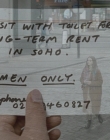 SIT WITH TOILET
NG-TERM RENT
IN SOHO.
MEN ONLY.
phone
02 460827